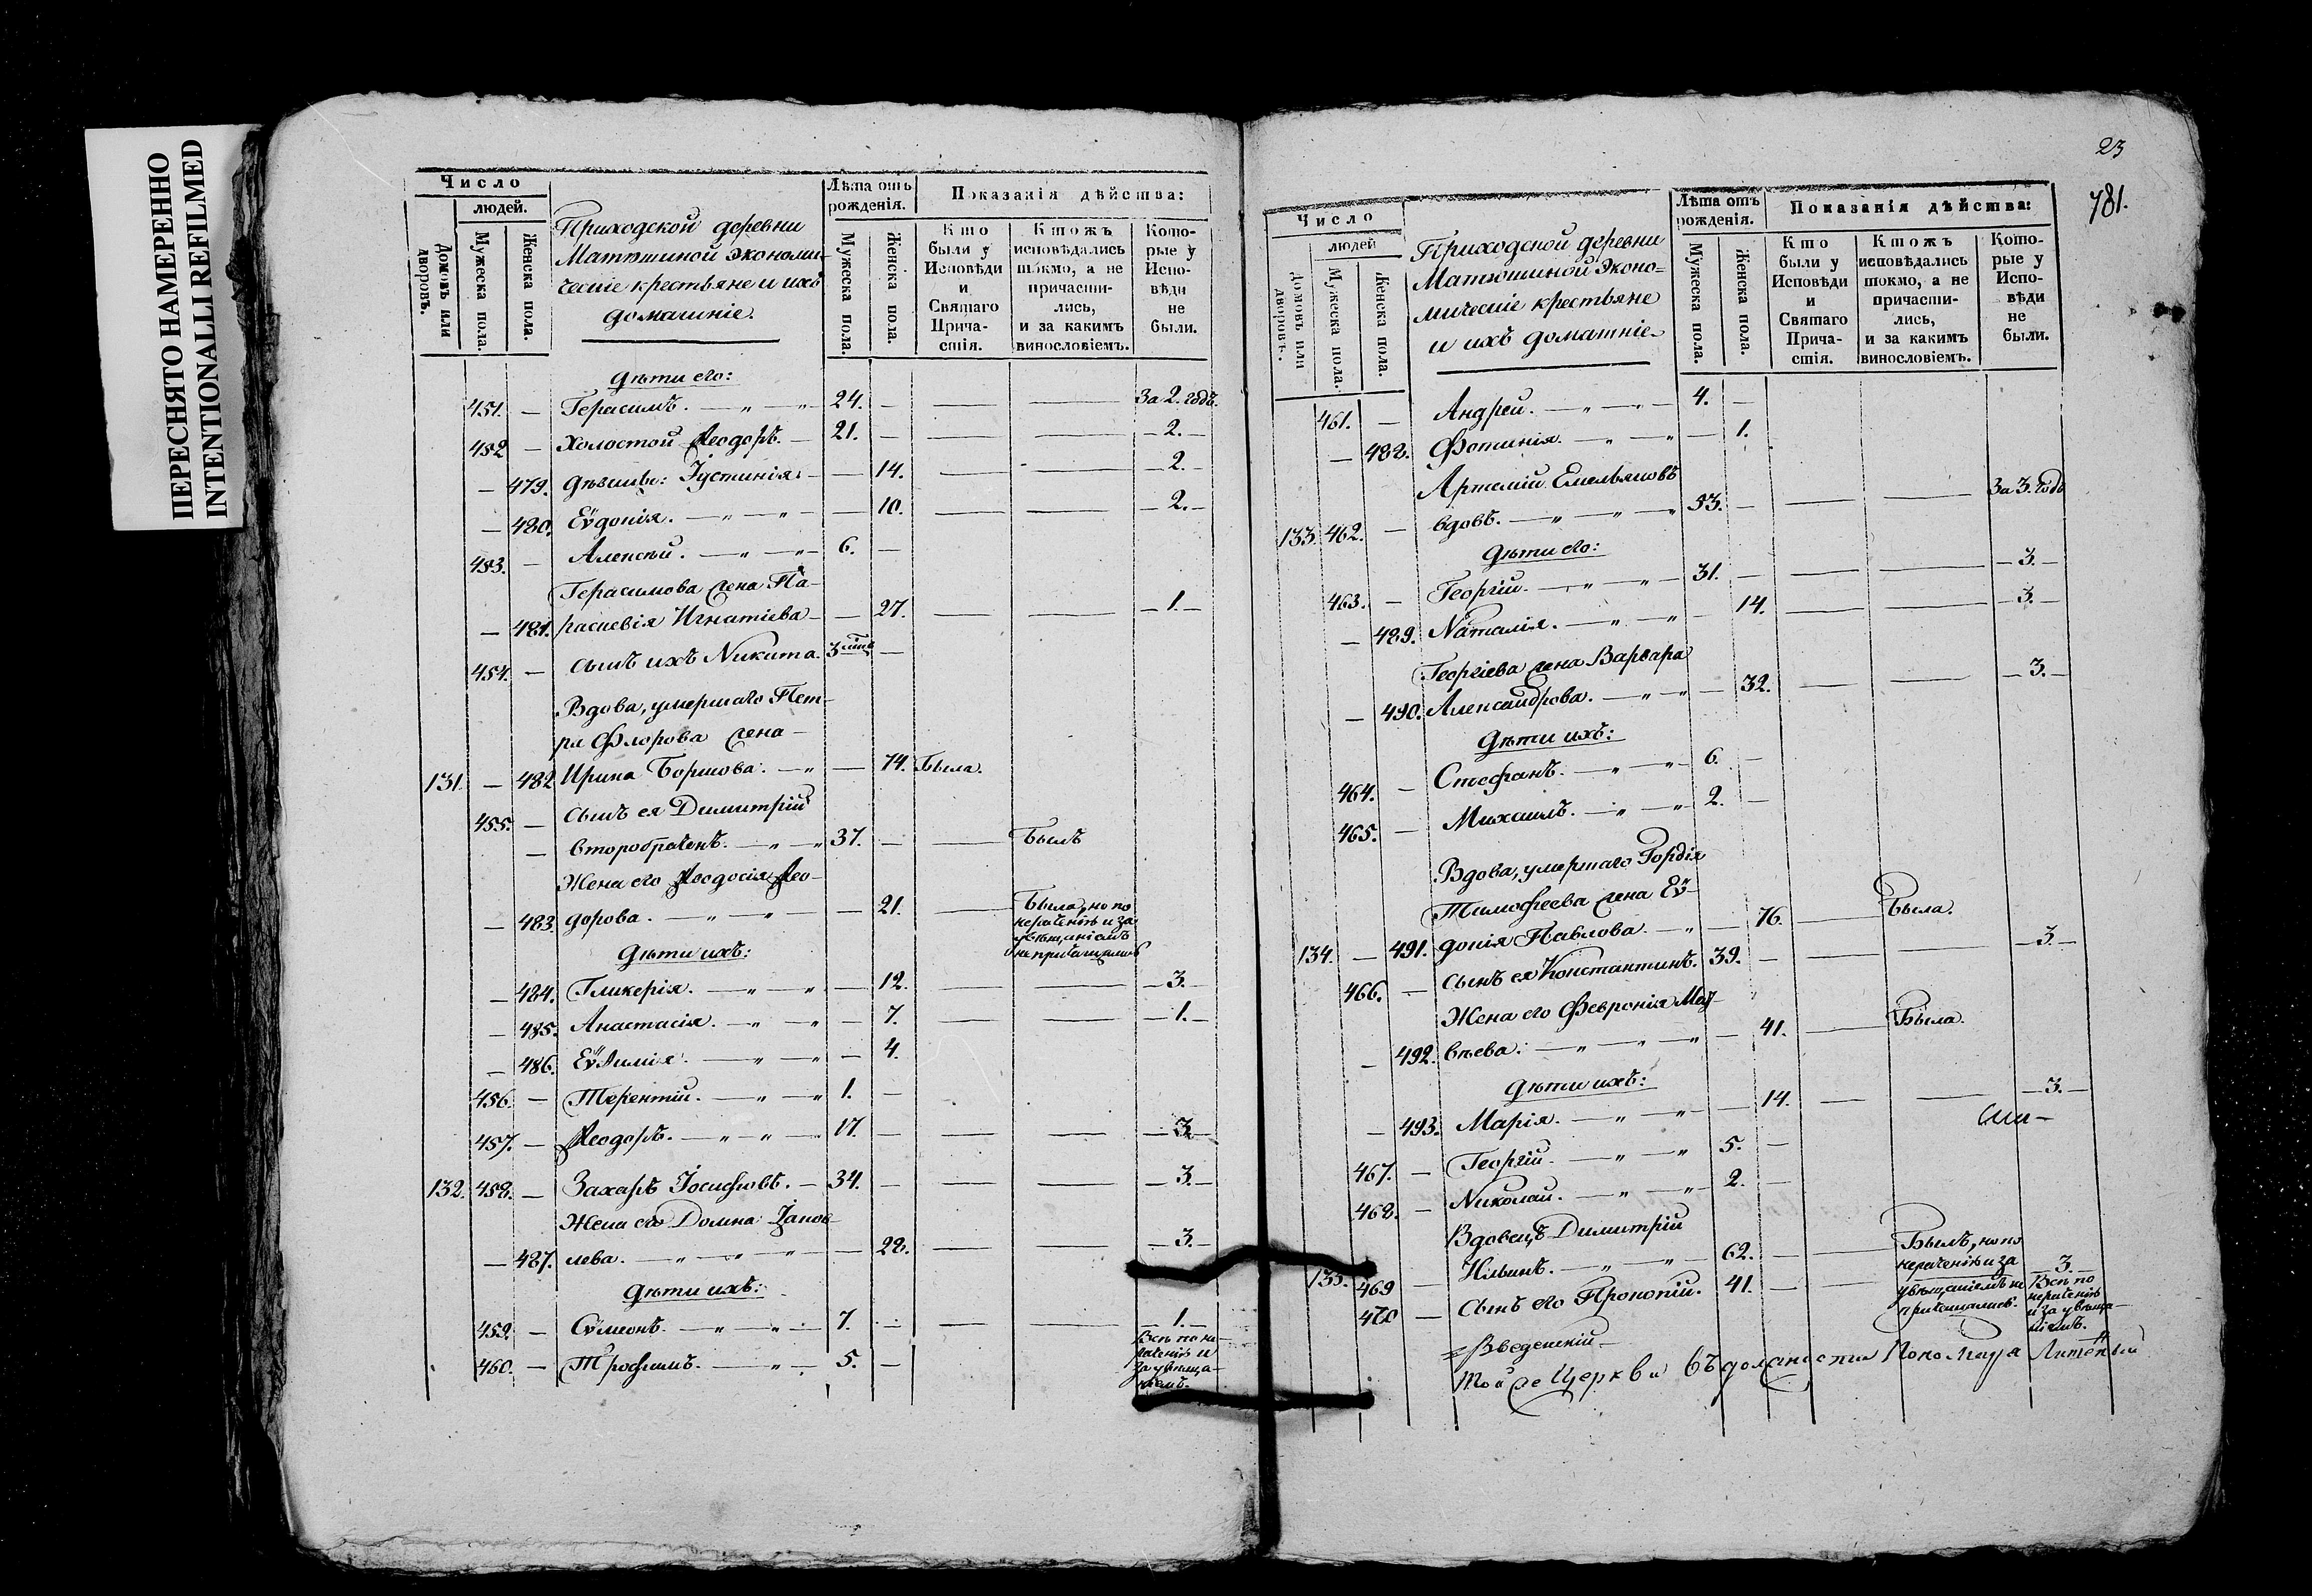 ПЕРЕСНЯТО НАМЕРЕННО
INTENTIONALLI REFILMED
Число
людей.
Домовъ или дворовъ.
Мужеска пола.
Женска пола.
Приходской деревни
Матюшиной экономи-
ческіе крестьяне и ихъ
домашніе.
Лѣта отъ рожденія.
Мужеска пола.
Женска пола.
Показанія дѣйства:
Кто были у Исповѣди и Святаго Прича-стія.
Ктожъ исповѣдались токмо, а не причасти-лись, и за какимъ винословіемъ.
Кото-рые у Испо-вѣди не были.
Дѣти его:
451. — Герасимъ. — „ — „ 24. — — — За 2. годъ.
452 — Холостой Ѳеодоръ. — 21. — — — — 2. —
— 479. Дѣвица: Іустинія. — — 14. — — — 2. —
— 480. Еѵдокія. — „ — „ — — 10. — — — 2. —
453. — Алексѣй. — „ — „ — 6. —
Герасимова жена Па-
— 481. раскевія Игнатіева — — 27. — — — 1. —
454. — сынъ ихъ Никита. 3 —
Вдова, умершаго Пет-
ра Флорова жена —
131. — 482 Ирина Борисова. — „ — 74. Была.
455. — сынъ ея Димитрій
— второбраченъ. — „ — „ 37. — — Былъ
Жена его Ѳеодосія Ѳео-
— 483. дорова. — „ — „ — — 21. — Была, но по
нераченію и за
увѣщаніемъ
не причащалась
Дѣти ихъ:
— 484. Гликерія. — „ — „ — 12. — — — 3. —
— 485. Анастасія. — „ — „ — 7. — — — 1. —
— 486. Еѵѳимія. — „ — „ — 4.
456. — Терентій. — „ — „ 1. —
457. — Ѳеодоръ. — „ — „ — 17. — — — — 3. —
132. 458. — Захаръ Іосифовъ. — 34. — — — — 3. —
Жена его Домна Іаков-
— 487. лева. — „ — „ — „ — 28. — — — 3. —
Дѣти ихъ:
459. — Сѵмеонъ. — „ — „ — 7. — — — — 1. —
460. — Трофимъ. — „ — 5. —
Всѣ по не-
раченію и
за увѣща-
ніемъ.
23
781.
Число
людей
Домовъ или дворовъ.
Мужеска пола.
Женска пола.
Приходской деревни
Матюшиной эконо=
мическіе крестьяне
и ихъ домашніе
Лѣта отъ рожденія.
Мужеска пола.
Женска пола.
Показанія дѣйства:
Кто были у Исповѣди и Святаго Прича-стія.
Ктожъ исповѣдались токмо, а не причасти-лись, и за какимъ винословіемъ.
Кото-рые у Испо-вѣди не были.
461. — Андрей. — „ — „ — 4. —
— 488. Фотинія. — „ — „ — 1.
Артемій Емельяновъ
133. 462. — вдовъ. — „ — „ — „ 53. — — — За 3. годъ
Дѣти его:
463. — Георгій. — „ — „ — 31. — — — — 3. —
— 489. Наталія. — „ — „ — 14. — — — 3. —
Георгіева жена Варвара
— 490. Александрова. — „ — „ — 32. — — — 3. —
Дѣти ихъ:
464. — Стефанъ. — „ — „ 6. —
465. — Михаилъ. — „ — „ 2. —
Вдова, умершаго Гордія
Тимофеева жена Еѵ-
134. — 491. докія Павлова. — „ — 76. — Была.
466. — сынъ ея Константинъ. 39. — — — — 3. —
Жена его Февронія Мат-
— 492. вѣева. — „ — „ — „ — 41. — Была.
Дѣти ихъ:
— 493. Марія. — „ — „ — 14. — — — 3. —
467. — Георгій. — „ — „ 5. —
468. — Николай. — „ — „ 2. —
Вдовецъ Димитрій
135. 469 — Ильинъ. — „ — „ 62. — — Былъ, но по
нераченію и за
увѣщаніемъ не
причащались.
470 — сынъ его Прокопій. 41. — — — 3. —
Всѣ по
нераченію
и за увѣща-
ніямъ.
=Введенскій—
Той же Церкви въ должности Пономаря